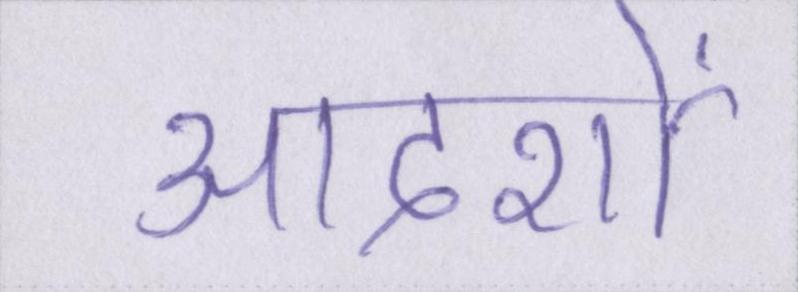 आदर्शों